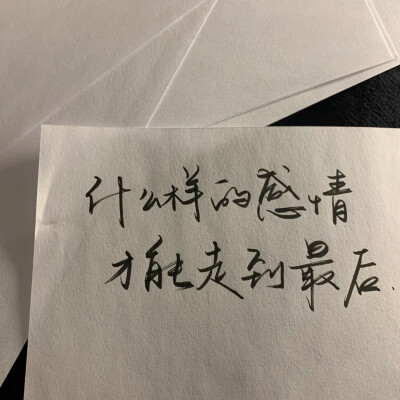 什么样的感情
才能走到最后.